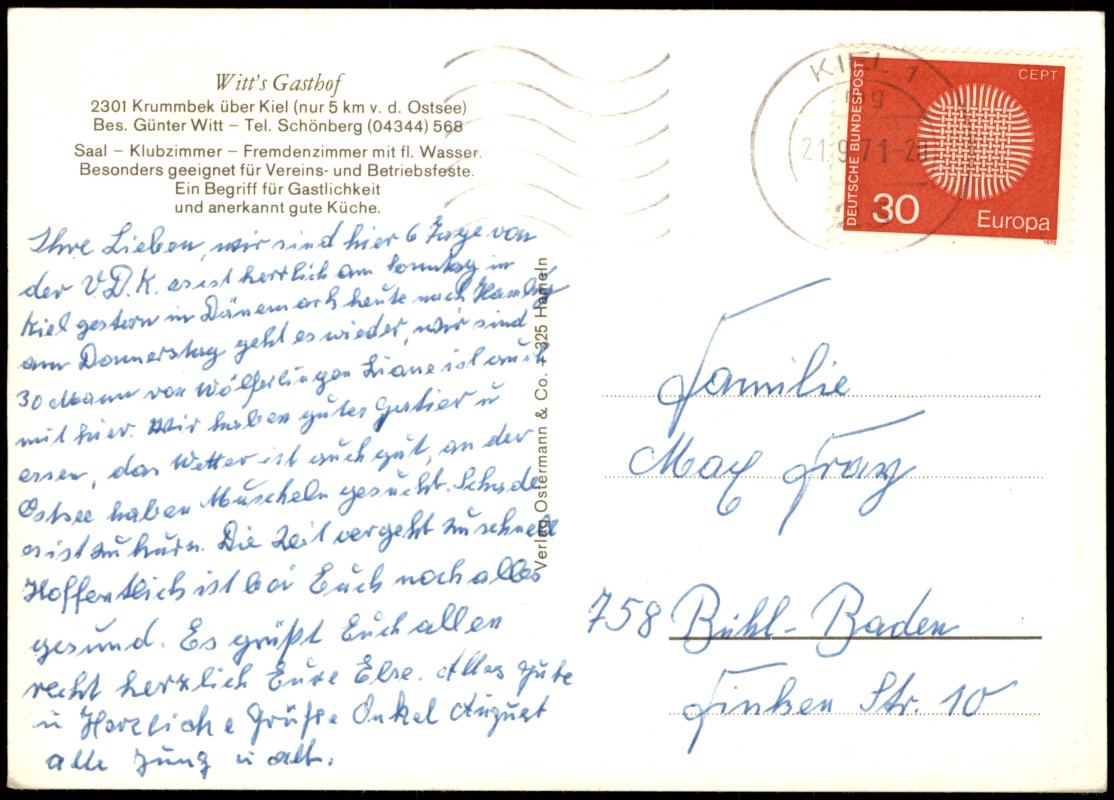 Witt's Gasthof
2301 Krummbek über Kiel (nur 5 km v. d. Ostsee)
Bes. Günter Witt – Tel. Schönberg (04344) 568
Saal – Klubzimmer – Fremdenzimmer mit fl. Wasser.
Besonders geeignet für Vereins- und Betriebsfeste.
Ein Begriff für Gastlichkeit
und anerkannt gute Küche.
Ihre Lieben, wir sind hier 6 Tage von
der V.D.K. es ist herrlich am Sonntag in
Kiel gestern in Dänemark heute nach Hamburg
am Donnerstag geht es wieder, wir sind
30 Mann von Wölferlingen Liane ist auch
mit hier. Wir haben gutes Qartier u
essen, das Wetter ist auch gut, an der
Ostsee haben Muscheln gesucht. Schade
es ist zu kurz. Die Zeit vergeht zu schnell
Hoffentlich ist bei Euch noch alles
gesund. Es grüßt Euch allen
recht herzlich Eure Else. Alles gute
u Herzliche Grüße Onkel August
alle Jung u alt.
Verlag Ostermann & Co. – 325 Hameln
KIEL 1
mg
21.9.71-20
23
DEUTSCHE BUNDESPOST
CEPT
30
Europa
1970
Familie
Max Franz
758 Bühl-Baden
Finken Str. 10